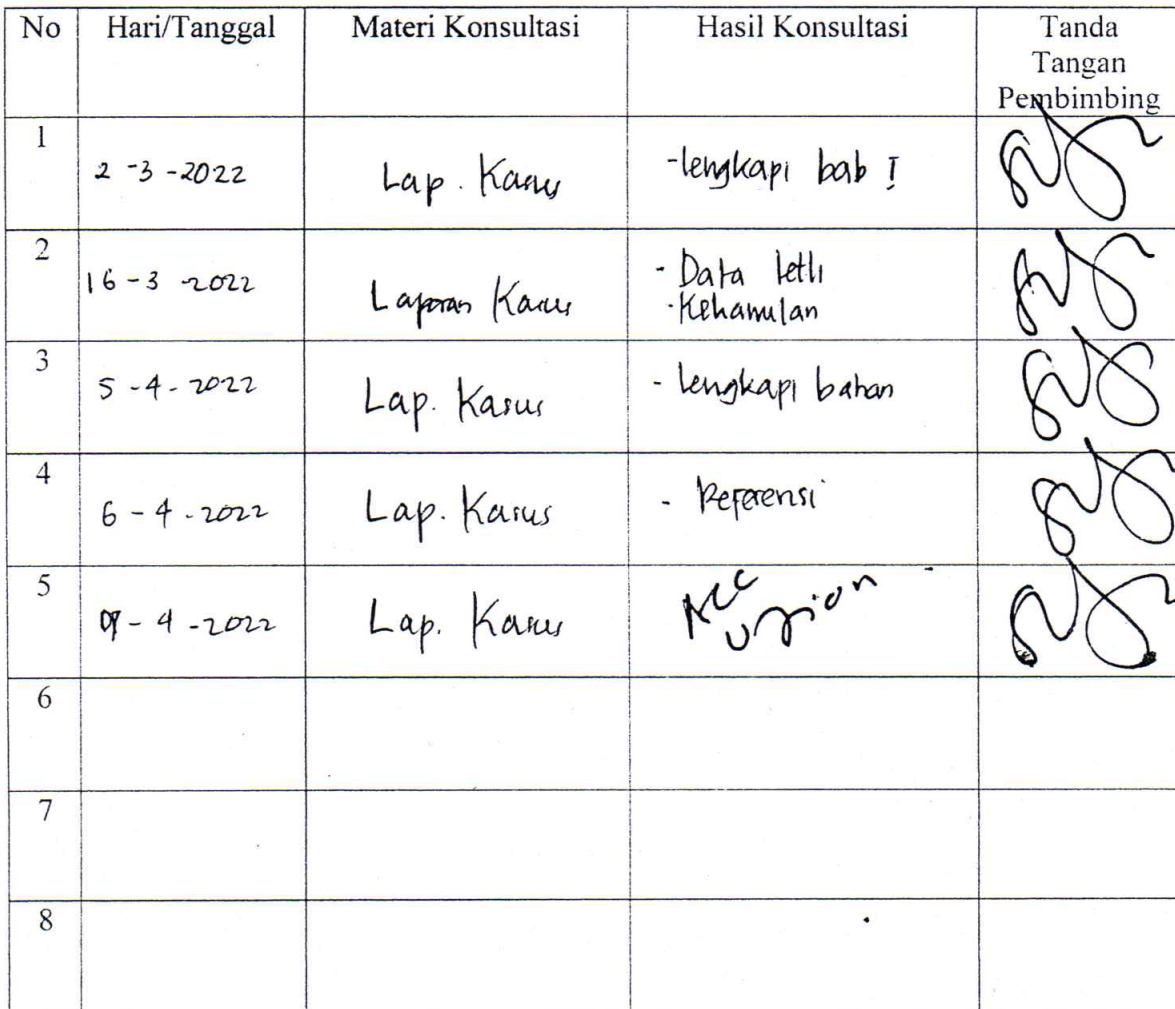 No Hari/Tanggal Materi Konsultasi Hasil Konsultasi Tanda
Tangan
Pembimbing
1
2-3-2022 Lap. Kasus -lengkapi bab I
2
16-3-2022 Laporan Kasus - Data
-Kehamilan
3
5-4-2022 Lap. Kasus - lengkapi bahan
4
6-4-2022 Lap. Kasus - Referensi
5
-4-2022 Lap. Kasus Acc
6
7
8